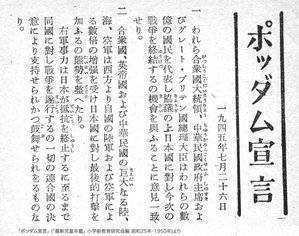 ポツダム宣言
一九四五年七月二十六日
一、われら合衆國大統領、中華民國政府主席およ
びグレート・ブリテン國總理大臣はわれらの數
億の國民を代表し協議の上日本國に對し今次の
戰爭を終結するの機會を與ふることに意見一致
せり。
二 合衆國、英帝國および中華民國の巨大なる陸、
海、空軍は西方より自國の陸軍および空軍によ
る數倍の增强を受け日本國に對し最後的打撃を
加ふるの態勢を整へたり。
右軍事力は日本が抵抗を終止するに至るまで
同國に對し戰爭を遂行するの一切の連合國の決
意により支持せられかつ鼓舞せられるものな
り。
「ポツダム宣言」(『最新児童年鑑』小学新教育研究会編 昭和25年・1950年)より